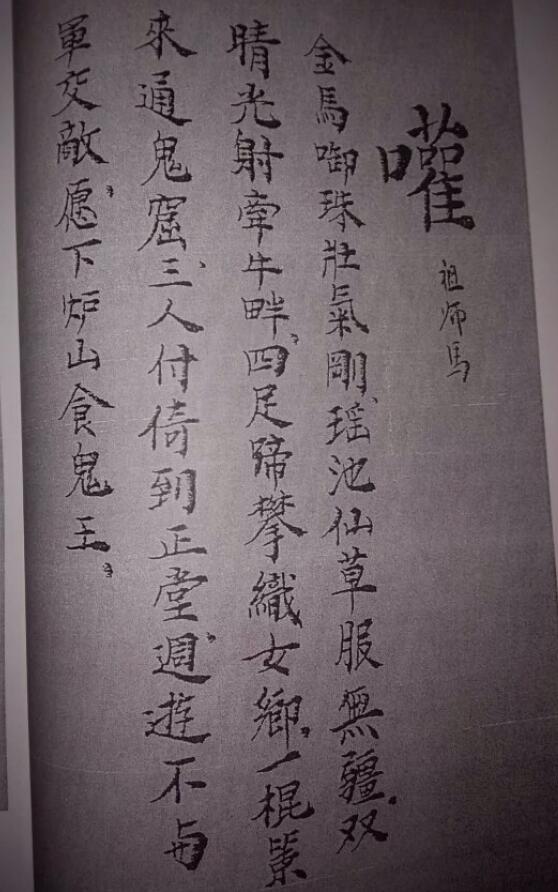 嚾 祖师馬
金馬啣珠壯氣剛、瑶池仙草服無疆。双
晴光射牽牛畔、四足蹄攀織女鄉、一棍
來通鬼窟、三人付倚到正堂、週遊不与
軍交敵、愿下炉山食鬼王、